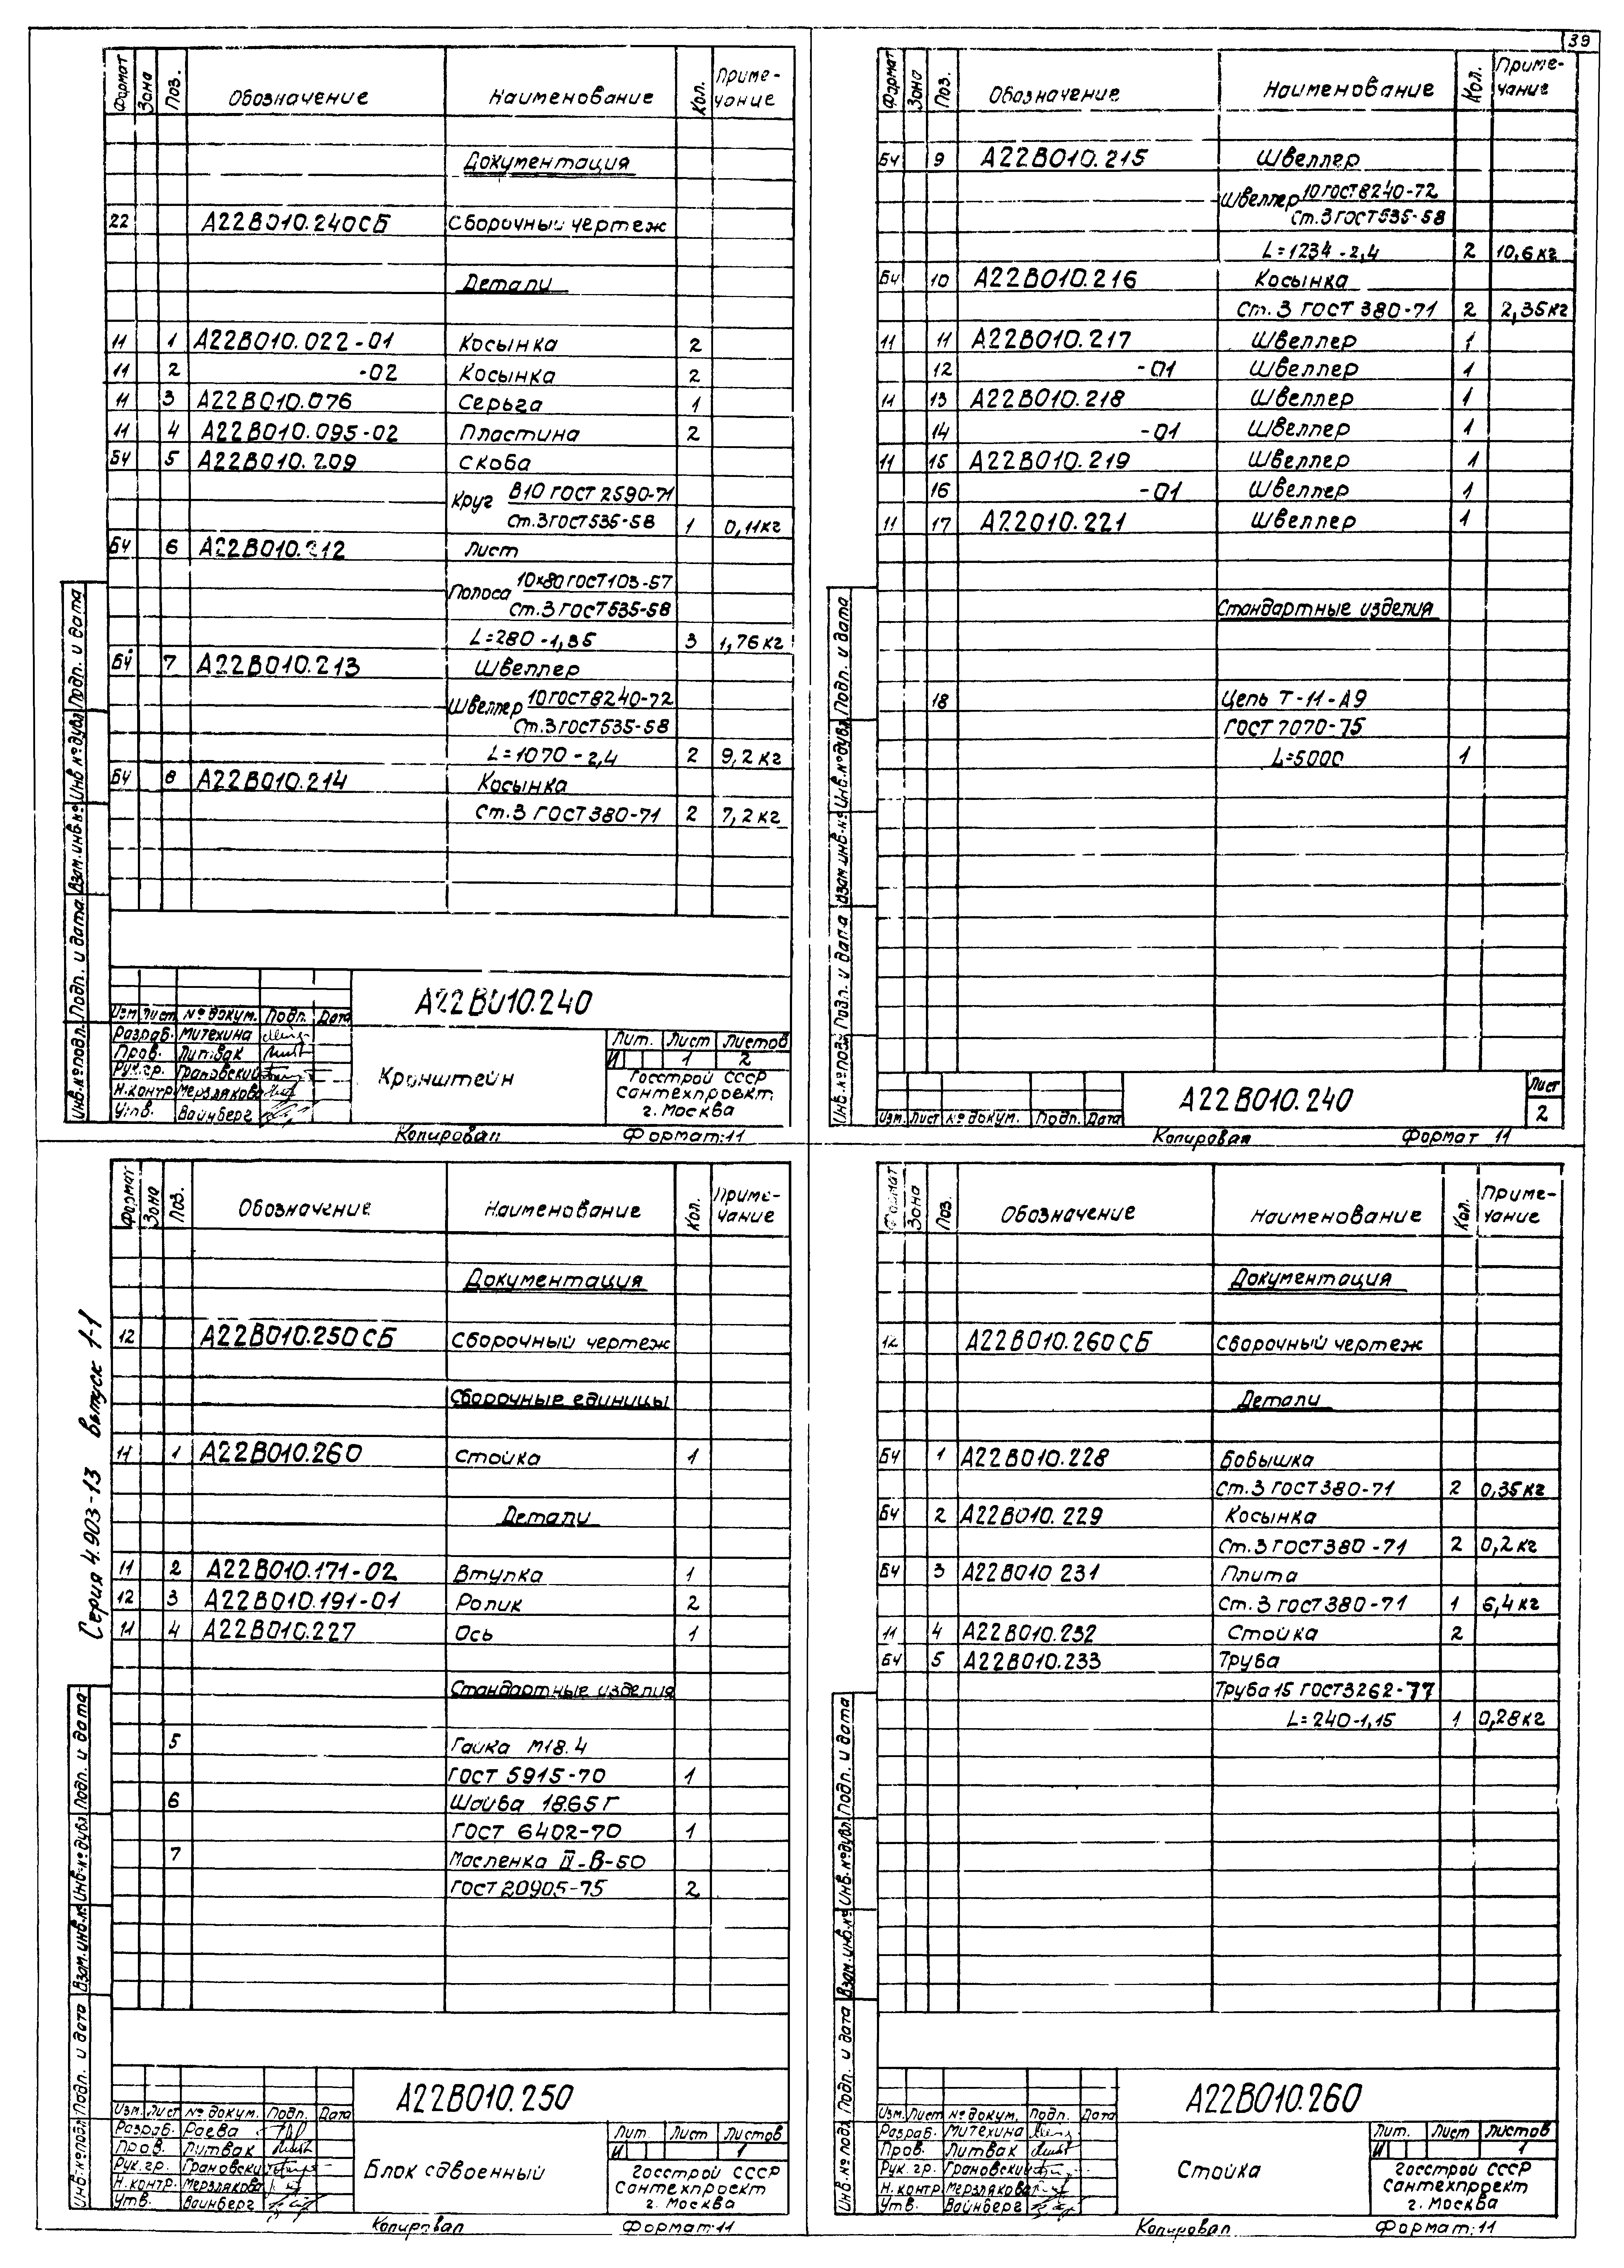 39
Формат Зона Поз. Обозначение Наименование Кол. Приме-
чание
Документация
22 А22В010.240СБ Сборочный чертеж
Детали
11 1 А22В010.022-01 Косынка 2
11 2 -02 Косынка 2
11 3 А22В010.076 Серьга 1
11 4 А22В010.095-02 Пластина 2
БЧ 5 А22В010.209 Скоба
Круг В10 ГОСТ 2590-71
Ст.3 ГОСТ 535-58 1 0,11кг
БЧ 6 А22В010.212 Лист
Полоса 10×80 ГОСТ 103-57
Ст.3 ГОСТ 535-58
L=280-1,35 3 1,76кг
БЧ 7 А22В010.213 Швеллер
Швеллер 10 ГОСТ 8240-72
Ст.3 ГОСТ 535-58
L=1070-2,4 2 9,2кг
БЧ 8 А22В010.214 Косынка
Ст.3 ГОСТ 380-71 2 7,2кг
Инв.№подл. Подп. и дата Взам.инв.№ Инв.№дубл. Подп. и дата
А22В010.240
Изм Лист № докум. Подп. Дата
Разраб. Митехина
Пров. Литвак
Рук.гр. Грановский
Н.контр. Мерзлякова
Утв. Вайнберг
Кронштейн
Лит. Лист Листов
И 1 2
Госстрой СССР
Сантехпроект
г. Москва
Копировал Формат:11
Формат Зона Поз. Обозначение Наименование Кол. Приме-
чание
БЧ 9 А22В010.215 Швеллер
Швеллер 10 ГОСТ 8240-72
Ст.3 ГОСТ 535-58
L=1234-2,4 2 10,6кг
БЧ 10 А22В010.216 Косынка
Ст.3 ГОСТ 380-71 2 2,35кг
11 11 А22В010.217 Швеллер 1
12 -01 Швеллер 1
11 13 А22В010.218 Швеллер 1
14 -01 Швеллер 1
11 15 А22В010.219 Швеллер 1
16 -01 Швеллер 1
11 17 А22010.221 Швеллер 1
Стандартные изделия
18 Цепь Т-11-А9
ГОСТ 7070-75
L=5000 1
Инв.№подл. Подп. и дата Взам.инв.№ Инв.№дубл. Подп. и дата
Изм. Лист № докум. Подп. Дата
А22В010.240
Лист
2
Копировал Формат 11
Серия 4.903-13 Выпуск 1-1
Формат Зона Поз. Обозначение Наименование Кол. Приме-
чание
Документация
12 А22В010.250СБ Сборочный чертеж
Сборочные единицы
11 1 А22В010.260 Стойка 1
Детали
11 2 А22В010.171-02 Втулка 1
12 3 А22В010.191-01 Ролик 2
11 4 А22В010.227 Ось 1
Стандартные изделия
5 Гайка М18.4
ГОСТ 5915-70 1
6 Шайба 18.65Г
ГОСТ 6402-70 1
7 Масленка IV-В-50
ГОСТ 20905-75 2
Инв.№подл. Подп. и дата Взам.инв.№ Инв.№дубл. Подп. и дата
А22В010.250
Изм. Лист № докум. Подп. Дата
Разраб. Раева
Пров. Литвак
Рук.гр. Грановский
Н.контр. Мерзлякова
Утв. Вайнберг
Блок сдвоенный
Лит. Лист Листов
И 1
Госстрой СССР
Сантехпроект
г. Москва
Копировал Формат:11
Формат Зона Поз. Обозначение Наименование Кол. Приме-
чание
Документация
12 А22В010.260СБ Сборочный чертеж
Детали
БЧ 1 А22В010.228 Бобышка
Ст.3 ГОСТ 380-71 2 0,35кг
БЧ 2 А22В010.229 Косынка
Ст.3 ГОСТ 380-71 2 0,2кг
БЧ 3 А22В010 231 Плита
Ст.3 ГОСТ 380-71 1 6,4кг
11 4 А22В010.232 Стойка 2
БЧ 5 А22В010.233 Труба
Труба 15 ГОСТ 3262-77
L=240-1,15 1 0,28кг
Инв.№подл. Подп. и дата Взам.инв.№ Инв.№дубл. Подп. и дата
А22В010.260
Изм. Лист № докум. Подп. Дата
Разраб. Митехина
Пров. Литвак
Рук.гр. Грановский
Н.контр. Мерзлякова
Утв. Вайнберг
Стойка
Лит. Лист Листов
И 1
Госстрой СССР
Сантехпроект
г. Москва
Копировал Формат:11